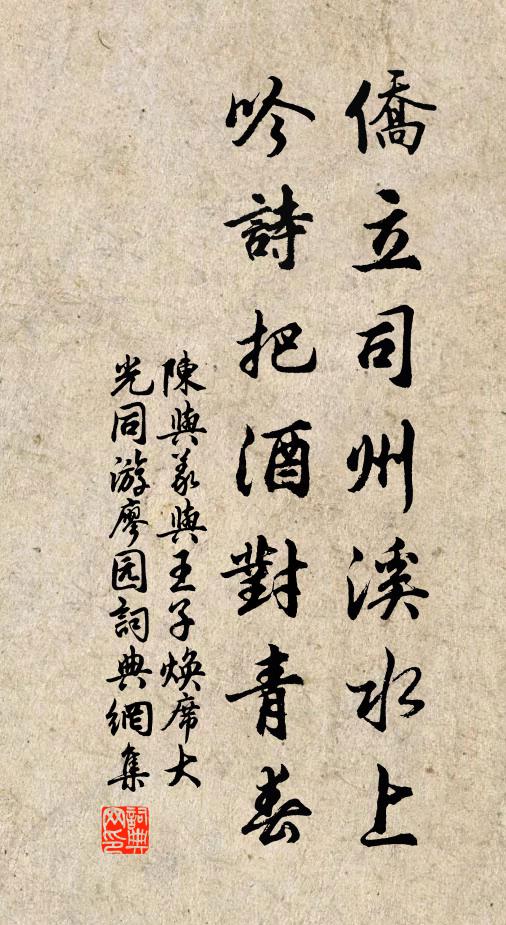 僑立司州溪水上
吟詩把酒對青春
陳與義與王子煥席大
光同游廖园詞典網集
詞典网印